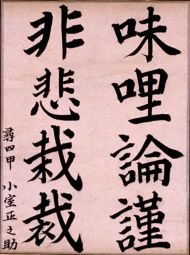 味哩論謹
非悲栽裁
尋四甲 小室正之助